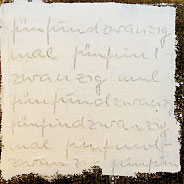 fünfundzwanzig
mal fünfund
zwanzig mal
fünfundzwanzig
fündzwanzig
mal fünfund
zwanzig fünfun